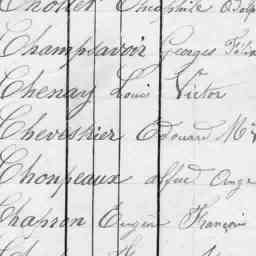 Chollet Théophile Adolp
Champsavoir Georges Féli
Chenay Louis Victor
Chevestrier Edouard M
Chonpeaux alfred Ange
Chapron Eugène François